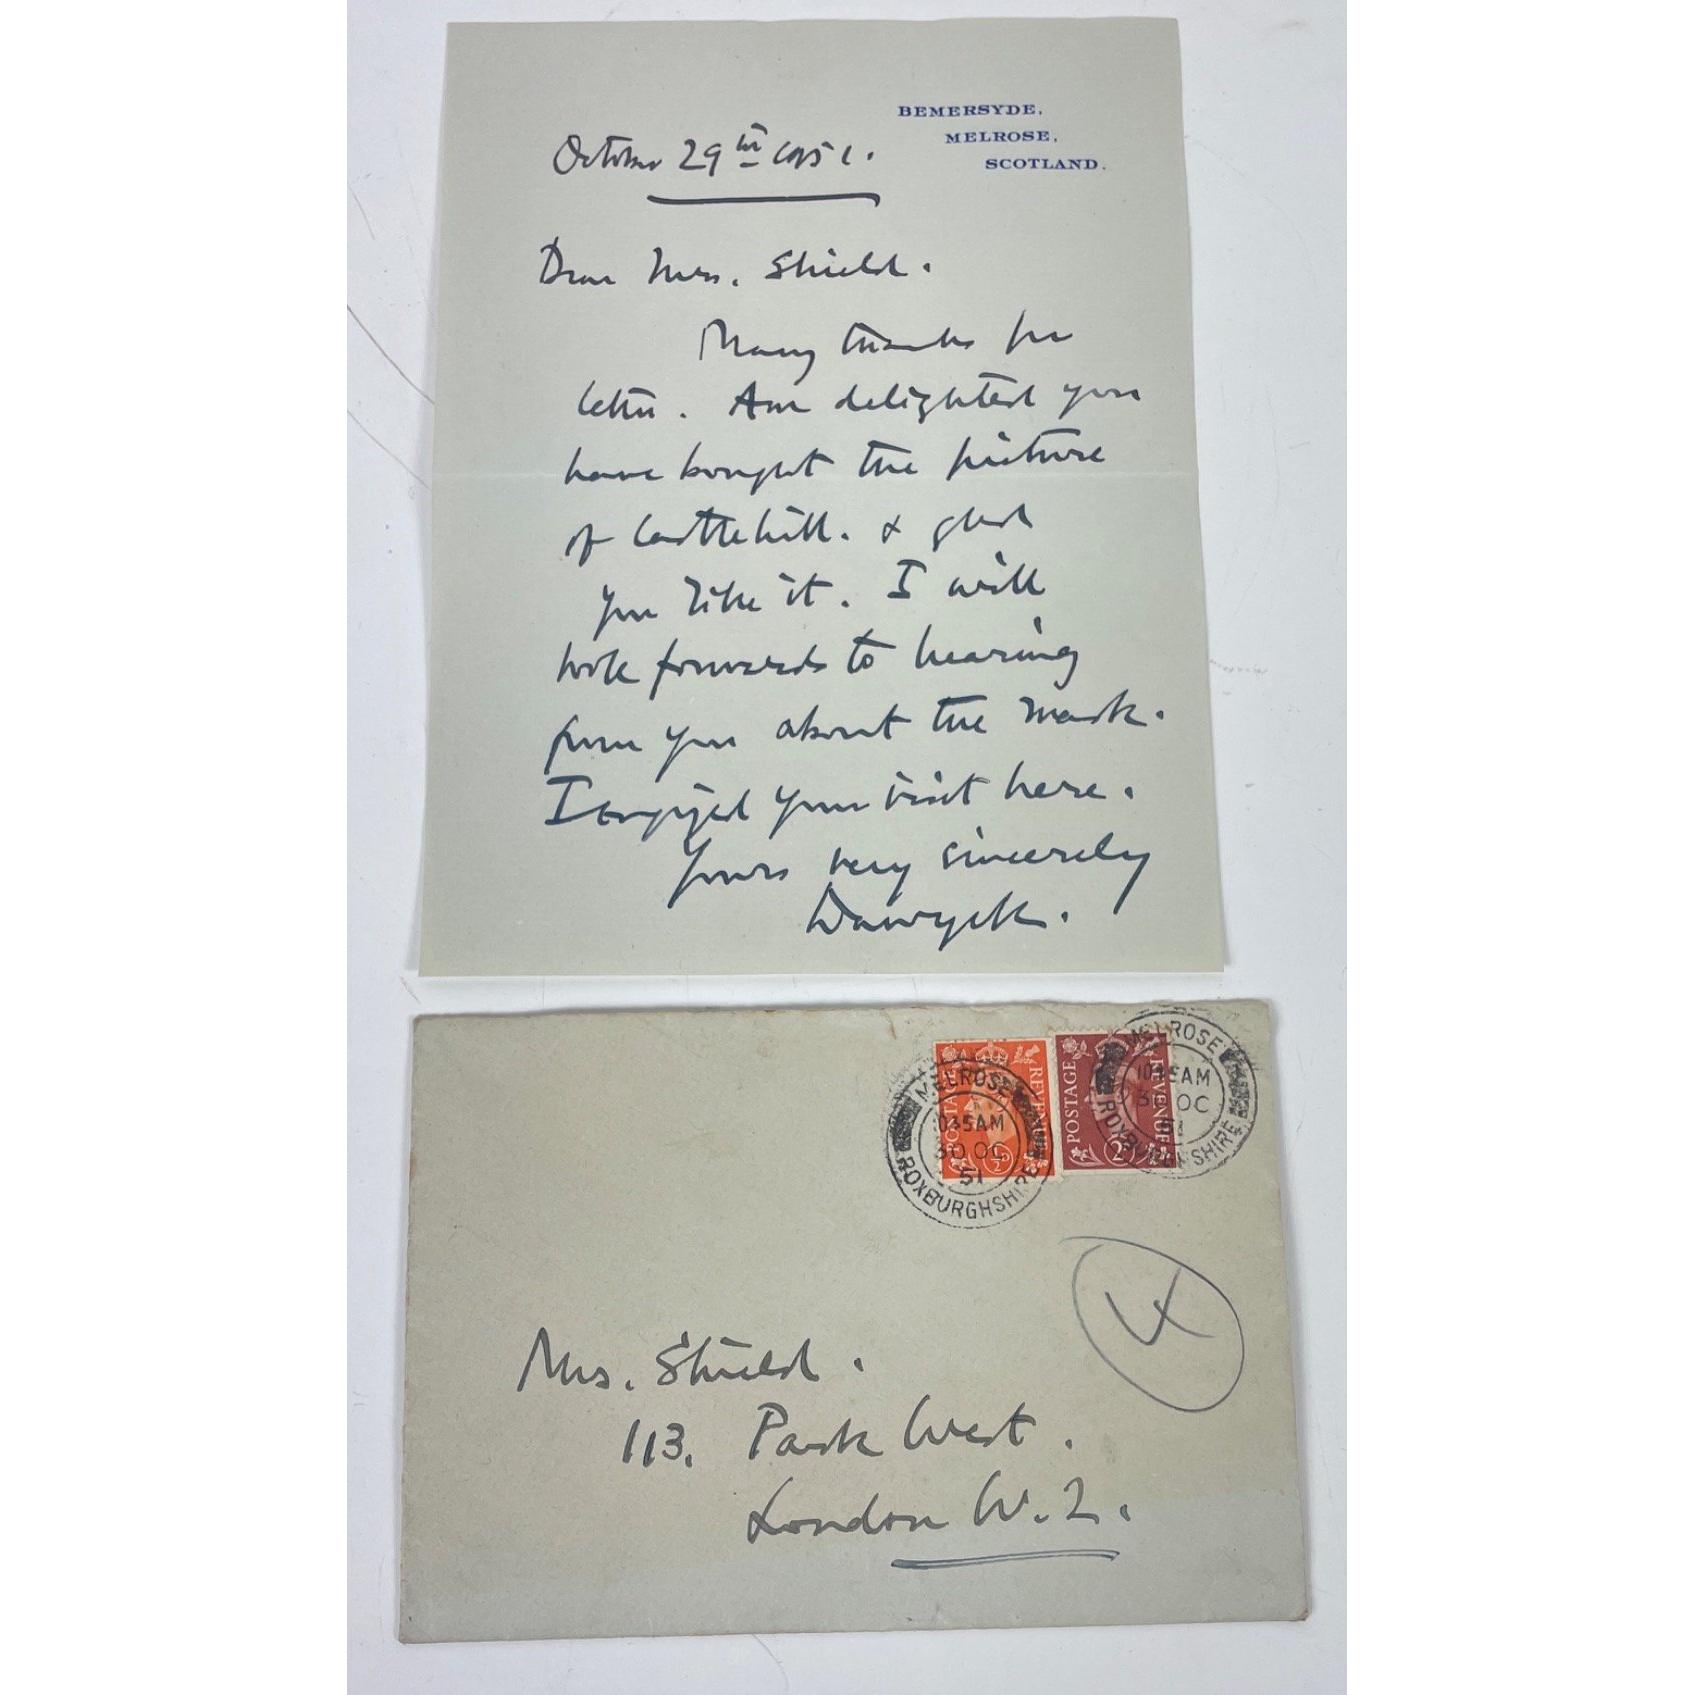 BEMERSYDE,
MELROSE,
SCOTLAND.
October 29th 1951.
Dear Mrs. Shield.
Many thanks for
letter. Am delighted you
have bought the picture
of Castlehill. & glad
you like it. I will
look forwards to hearing
from you about the mask.
I enjoyed your visit here.
Yours very sincerely
Dawyck.
POSTAGE REVENUE
½D
POSTAGE REVENUE
2D
MELROSE
10 35 AM
30 OC
51
ROXBURGHSHIRE
MELROSE
10 35 AM
30 OC
51
ROXBURGHSHIRE
4
Mrs. Shield.
113. Park West.
London W.2.